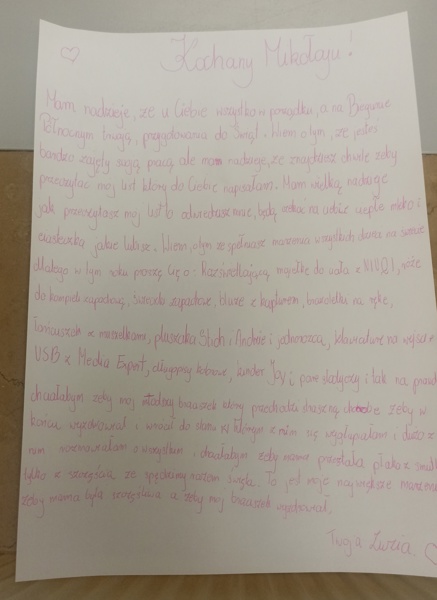 Kochany Mikołaju!
Mam nadzieję, że u Ciebie wszystko w porządku, a na Biegunie
Północnym trwają, przygotowania do Świąt. Wiem o tym, że jesteś
bardzo zajęty swoją pracą ale mam nadzieję, że znajdziesz chwilę żeby
przeczytać mój list który do Ciebie napisałam. Mam wielką nadzieję
jak przeczytasz mój list to odwiedzisz mnie, będą czekać na ciebie ciepłe mleko i
ciasteczka jakie lubisz. Wiem, o tym że spełniasz marzenia wszystkich dzieci na świecie
dlatego w tym roku proszę Cię o:
do kąpieli zapachowe, świeczki zapachowe, bluzę z kapturem, bransoletkę na rękę,
łańcuszek z, pluszaka Stich i Andzie i jednorożca, klawiaturę na wejście
USB z Media Expert, kolorowe, kinder Joy i parę słodyczy i tak na prawdę
chciałabym żeby mój młodszy braciszek który przechodzi straszną chorobę żeby w
końcu wyzdrowiał i wrócił do domu z nim się wygłupiałam i dużo z
nim rozmawiałam o wszystkim i chciałabym żeby mama przestała płakać z
tylko z szczęścia że spędzimy razem święta. To jest moje największe marzenie
żeby mama była szczęśliwa a żeby mój braciszek wyzdrowiał.
Twoja Zuzia